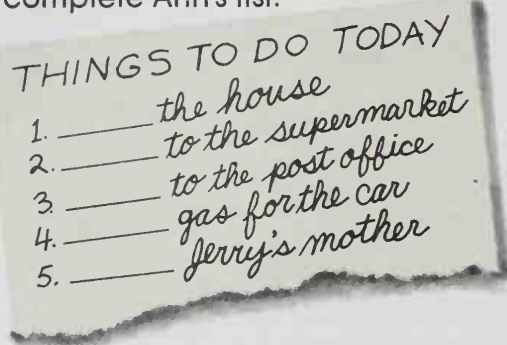 complete Ann's list.
THINGS TO DO TODAY
1. ______ the house
2. ______ to the supermarket
3. ______ to the post office
4. ______ gas for the car
5. ______ Jerry's mother